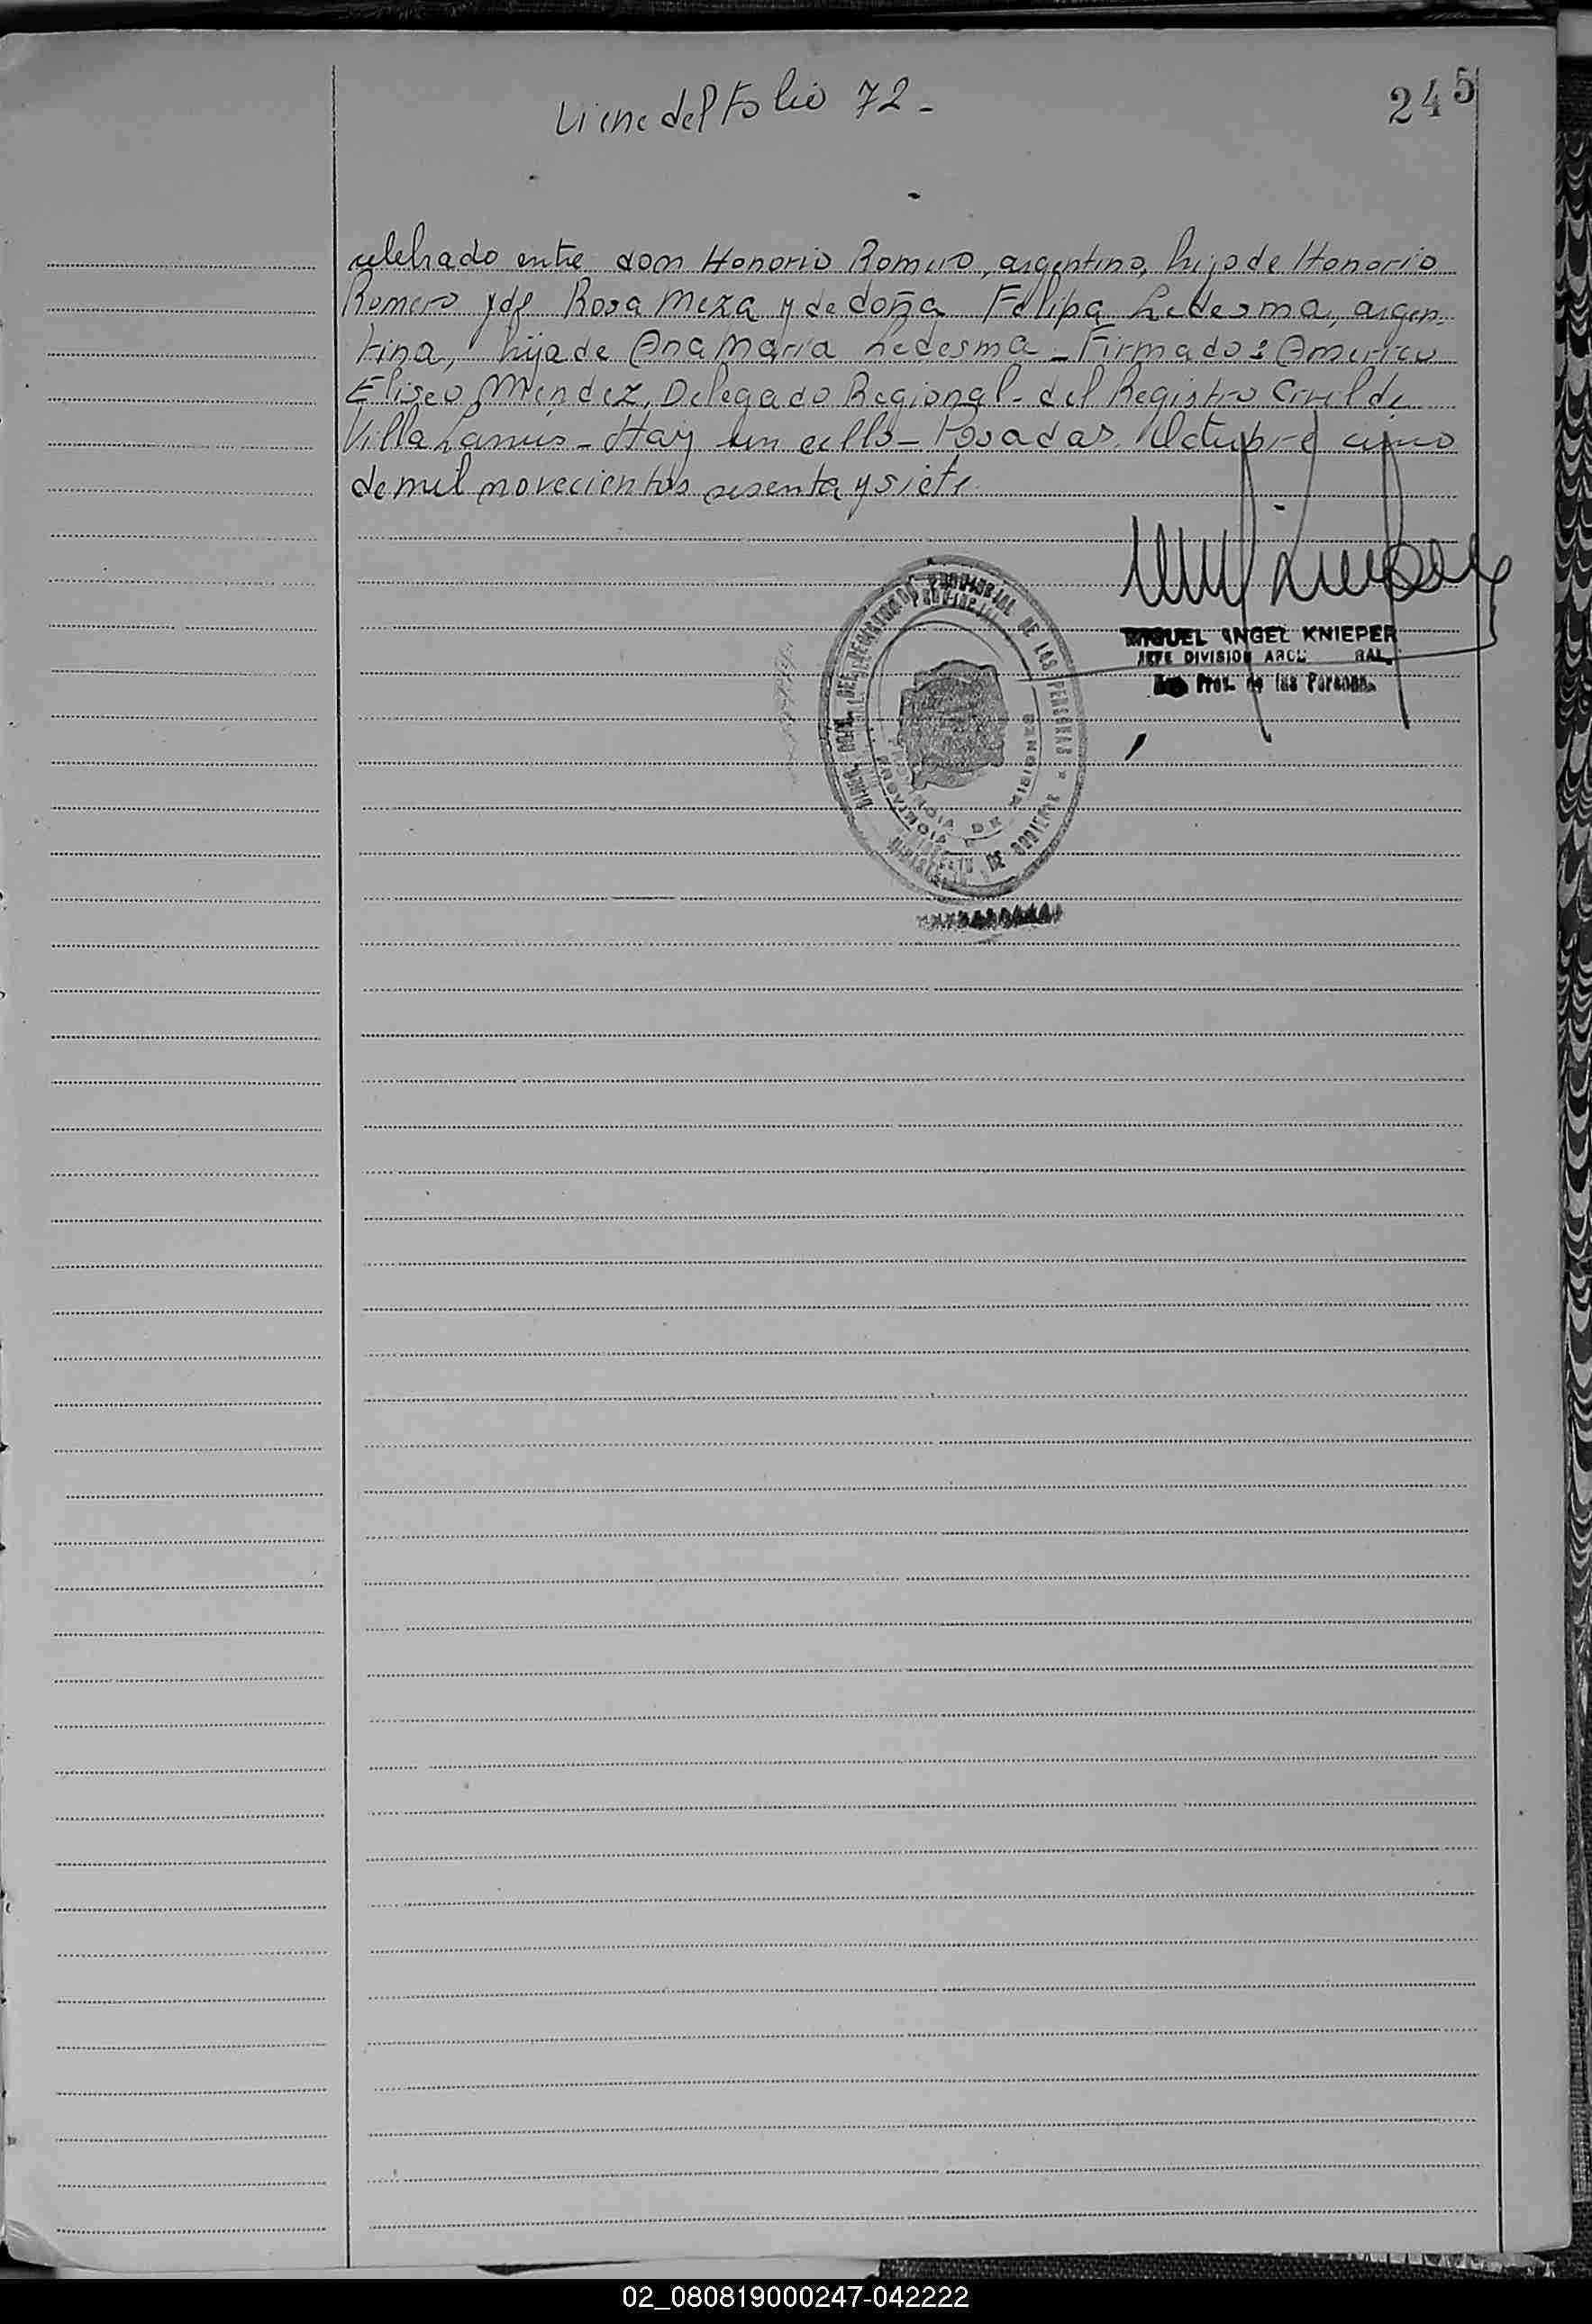 Viene del Folio 72 -
245
celebrado entre don Honorio Romero, argentino, hijo de Honorio
Romero y de Rosa Meza y de doña Felipa Ledesma, argen-
tina, hija de Ana María Ledesma - Firmado: Americo
Eliseo Méndez, Delegado Regional - del Registro Civil de
Villa Lanus - Hay un sello - Posadas, Octubre cinco
de mil novecientos sesenta y siete.
MIGUEL ANGEL KNIEPER
JEFE DIVISION
Prov. de las Personas
PROVINCIAL DE LAS PERSONAS
MINISTERIO DE GOBIERNO
PROVINCIA DE MISIONES
02_080819000247-042222